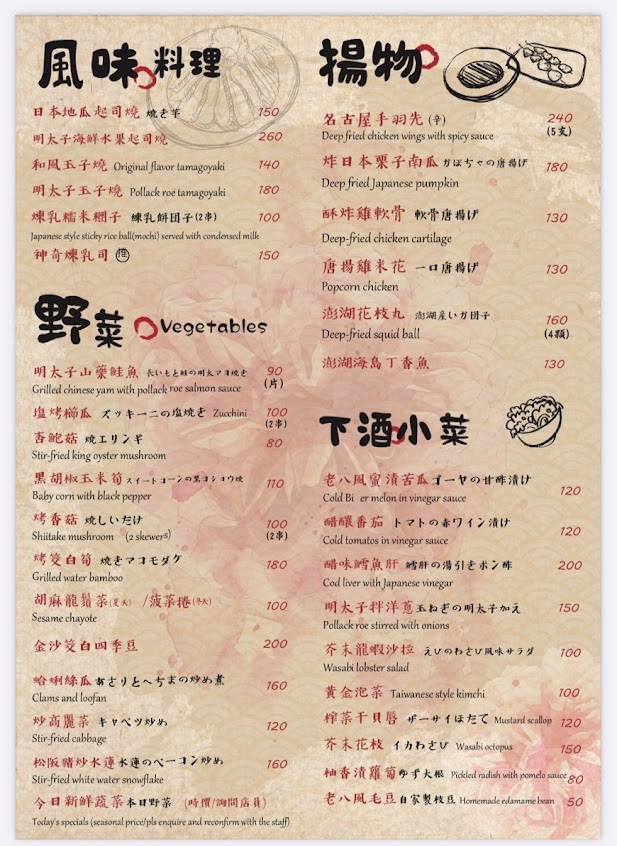 風味料理
日本地瓜起司燒 焼き芋 150
明太子海鮮水果起司燒 260
和風玉子燒 Original flavor tamagoyaki 140
明太子玉子燒 Pollack roe tamagoyaki 180
煉乳糯米糰子 練乳餅団子(2串) 100
Japanese style sticky rice ball(mochi) served with condensed milk
神奇煉乳司 推 150
野菜 Vegetables
明太子山藥鮭魚 長いもと鮭の明太マヨ焼き 90
Grilled chinese yam with pollack roe salmon sauce (片)
塩烤櫛瓜 ズッキーニの塩焼き Zucchini 100
(2串)
杏鮑菇 焼エリンギ 80
Stir-fried king oyster mushroom
黑胡椒玉米筍 スイートコーンの黒コショウ焼 110
Baby corn with black pepper
烤香菇 焼しいたけ 100
Shiitake mushroom (2 skewers) (2串)
烤筊白筍 焼きマコモダケ 180
Grilled water bamboo
胡麻龍鬚菜(夏天) /菠菜捲(冬天) 100
Sesame chayote
金沙筊白四季豆 200
蛤蜊絲瓜 あさりとへちまの炒め煮 160
Clams and loofan
炒高麗菜 キャベツ炒め 120
Stir-fried cabbage
松阪豬炒水蓮 水蓮のベーコン炒め 160
Stir-fried white water snowflake
今日新鮮蔬菜 本日野菜 (時價/詢問店員)
Today's specials (seasonal price/pls enquire and reconfirm with the staff)
揚物
名古屋手羽先 (辛) 240
Deep fried chicken wings with spicy sauce (5支)
炸日本栗子南瓜 かぼちゃの唐揚げ 180
Deep fried Japanese pumpkin
酥炸雞軟骨 軟骨唐揚げ 130
Deep-fried chicken cartilage
唐揚雞米花 一口唐揚げ 130
Popcorn chicken
澎湖花枝丸 澎湖産いか団子 160
Deep-fried squid ball (4顆)
澎湖海島丁香魚 130
下酒小菜
老八風蜜漬苦瓜 ゴーヤの甘酢漬け 120
Cold Bi er melon in vinegar sauce
醋釀番茄 トマトの赤ワイン漬け 120
Cold tomatoes in vinegar sauce
醋味鱈魚肝 鱈肝の湯引きポン酢 200
Cod liver with Japanese vinegar
明太子拌洋蔥 玉ねぎの明太子かえ 150
Pollack roe stirred with onions
芥末龍蝦沙拉 えびのわさび風味サラダ 100
Wasabi lobster salad
黃金泡菜 Taiwanese style kimchi 100
榨菜干貝唇 ザーサイほたて Mustard scallop 120
芥末花枝 イカわさび Wasabi octopus 150
柚香漬蘿蔔 ゆず大根 Pickled radish with pomelo sauce 80
老八風毛豆 自家製枝豆 Homemade edamame bean 50